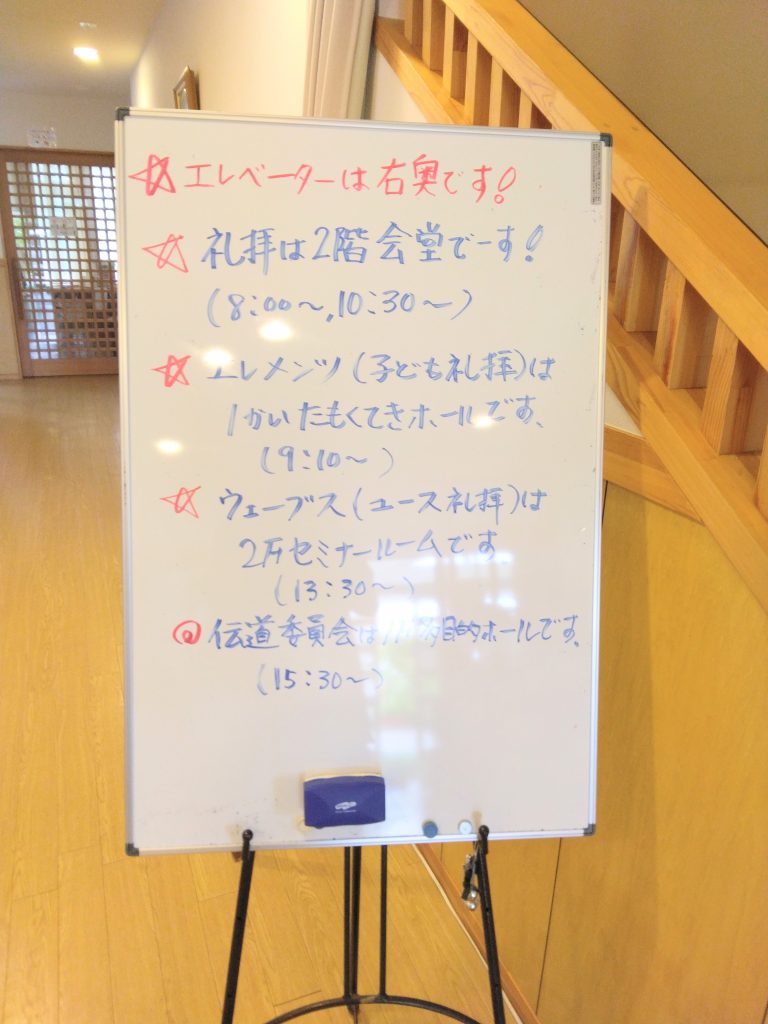 ☆エレベーターは右奥です!
☆礼拝は2階会堂でーす!
(8:00〜,10:30〜)
☆エレメンツ(子ども礼拝)は
1かいたもくてきホールです、
(9:10〜)
☆ウェーブス(ユース礼拝)は
2Fセミナールームです
(13:30〜)
伝道委員会は 多目的ホールです、
(15:30〜)